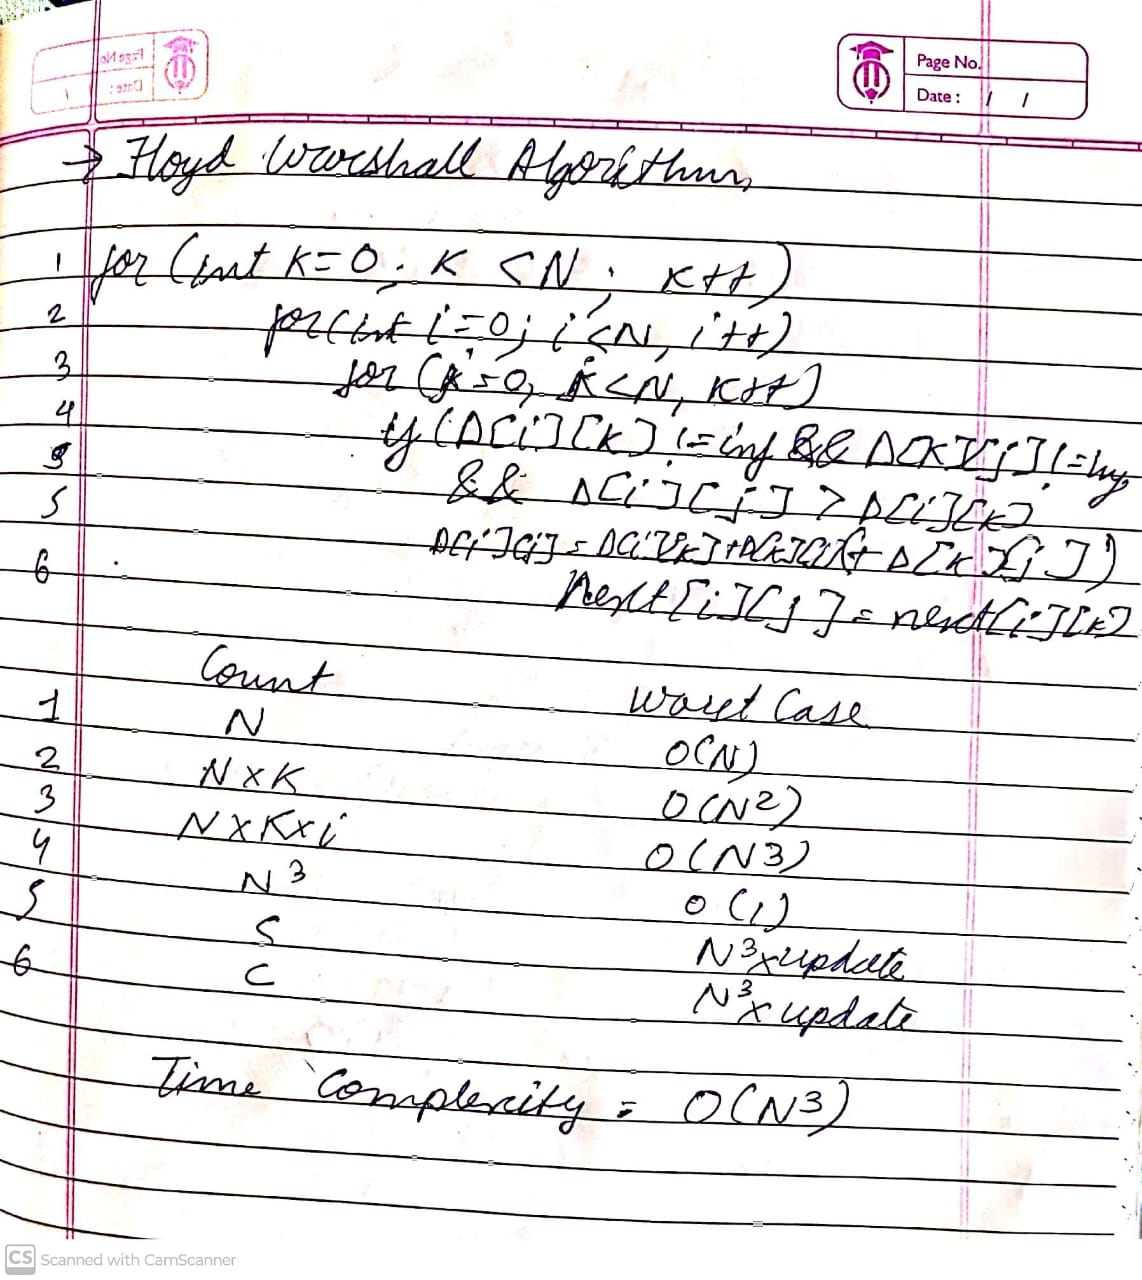 Page No.
Date : / /
→ Floyd Warshall Algorithm
1 for (int K=0; K <N; K++)
2 for(int i=0; i<N, i++)
3 for (j=0, j<N, K++)
4 if (D[i][K] != inf && D[K][j] != inf
5 && D[i][j] > D[i][K]
D[i][j] = D[i][K]+D[K][j] + D[K][j])
6 Next[i][j] = next[i][K]
Count Worst Case
1 N O(N)
2 N x K O(N2)
3 N x K x i O(N3)
4 N3 O(1)
5 S N3 x update
6 C N3 x update
Time Complexity = O(N3)
CS Scanned with CamScanner